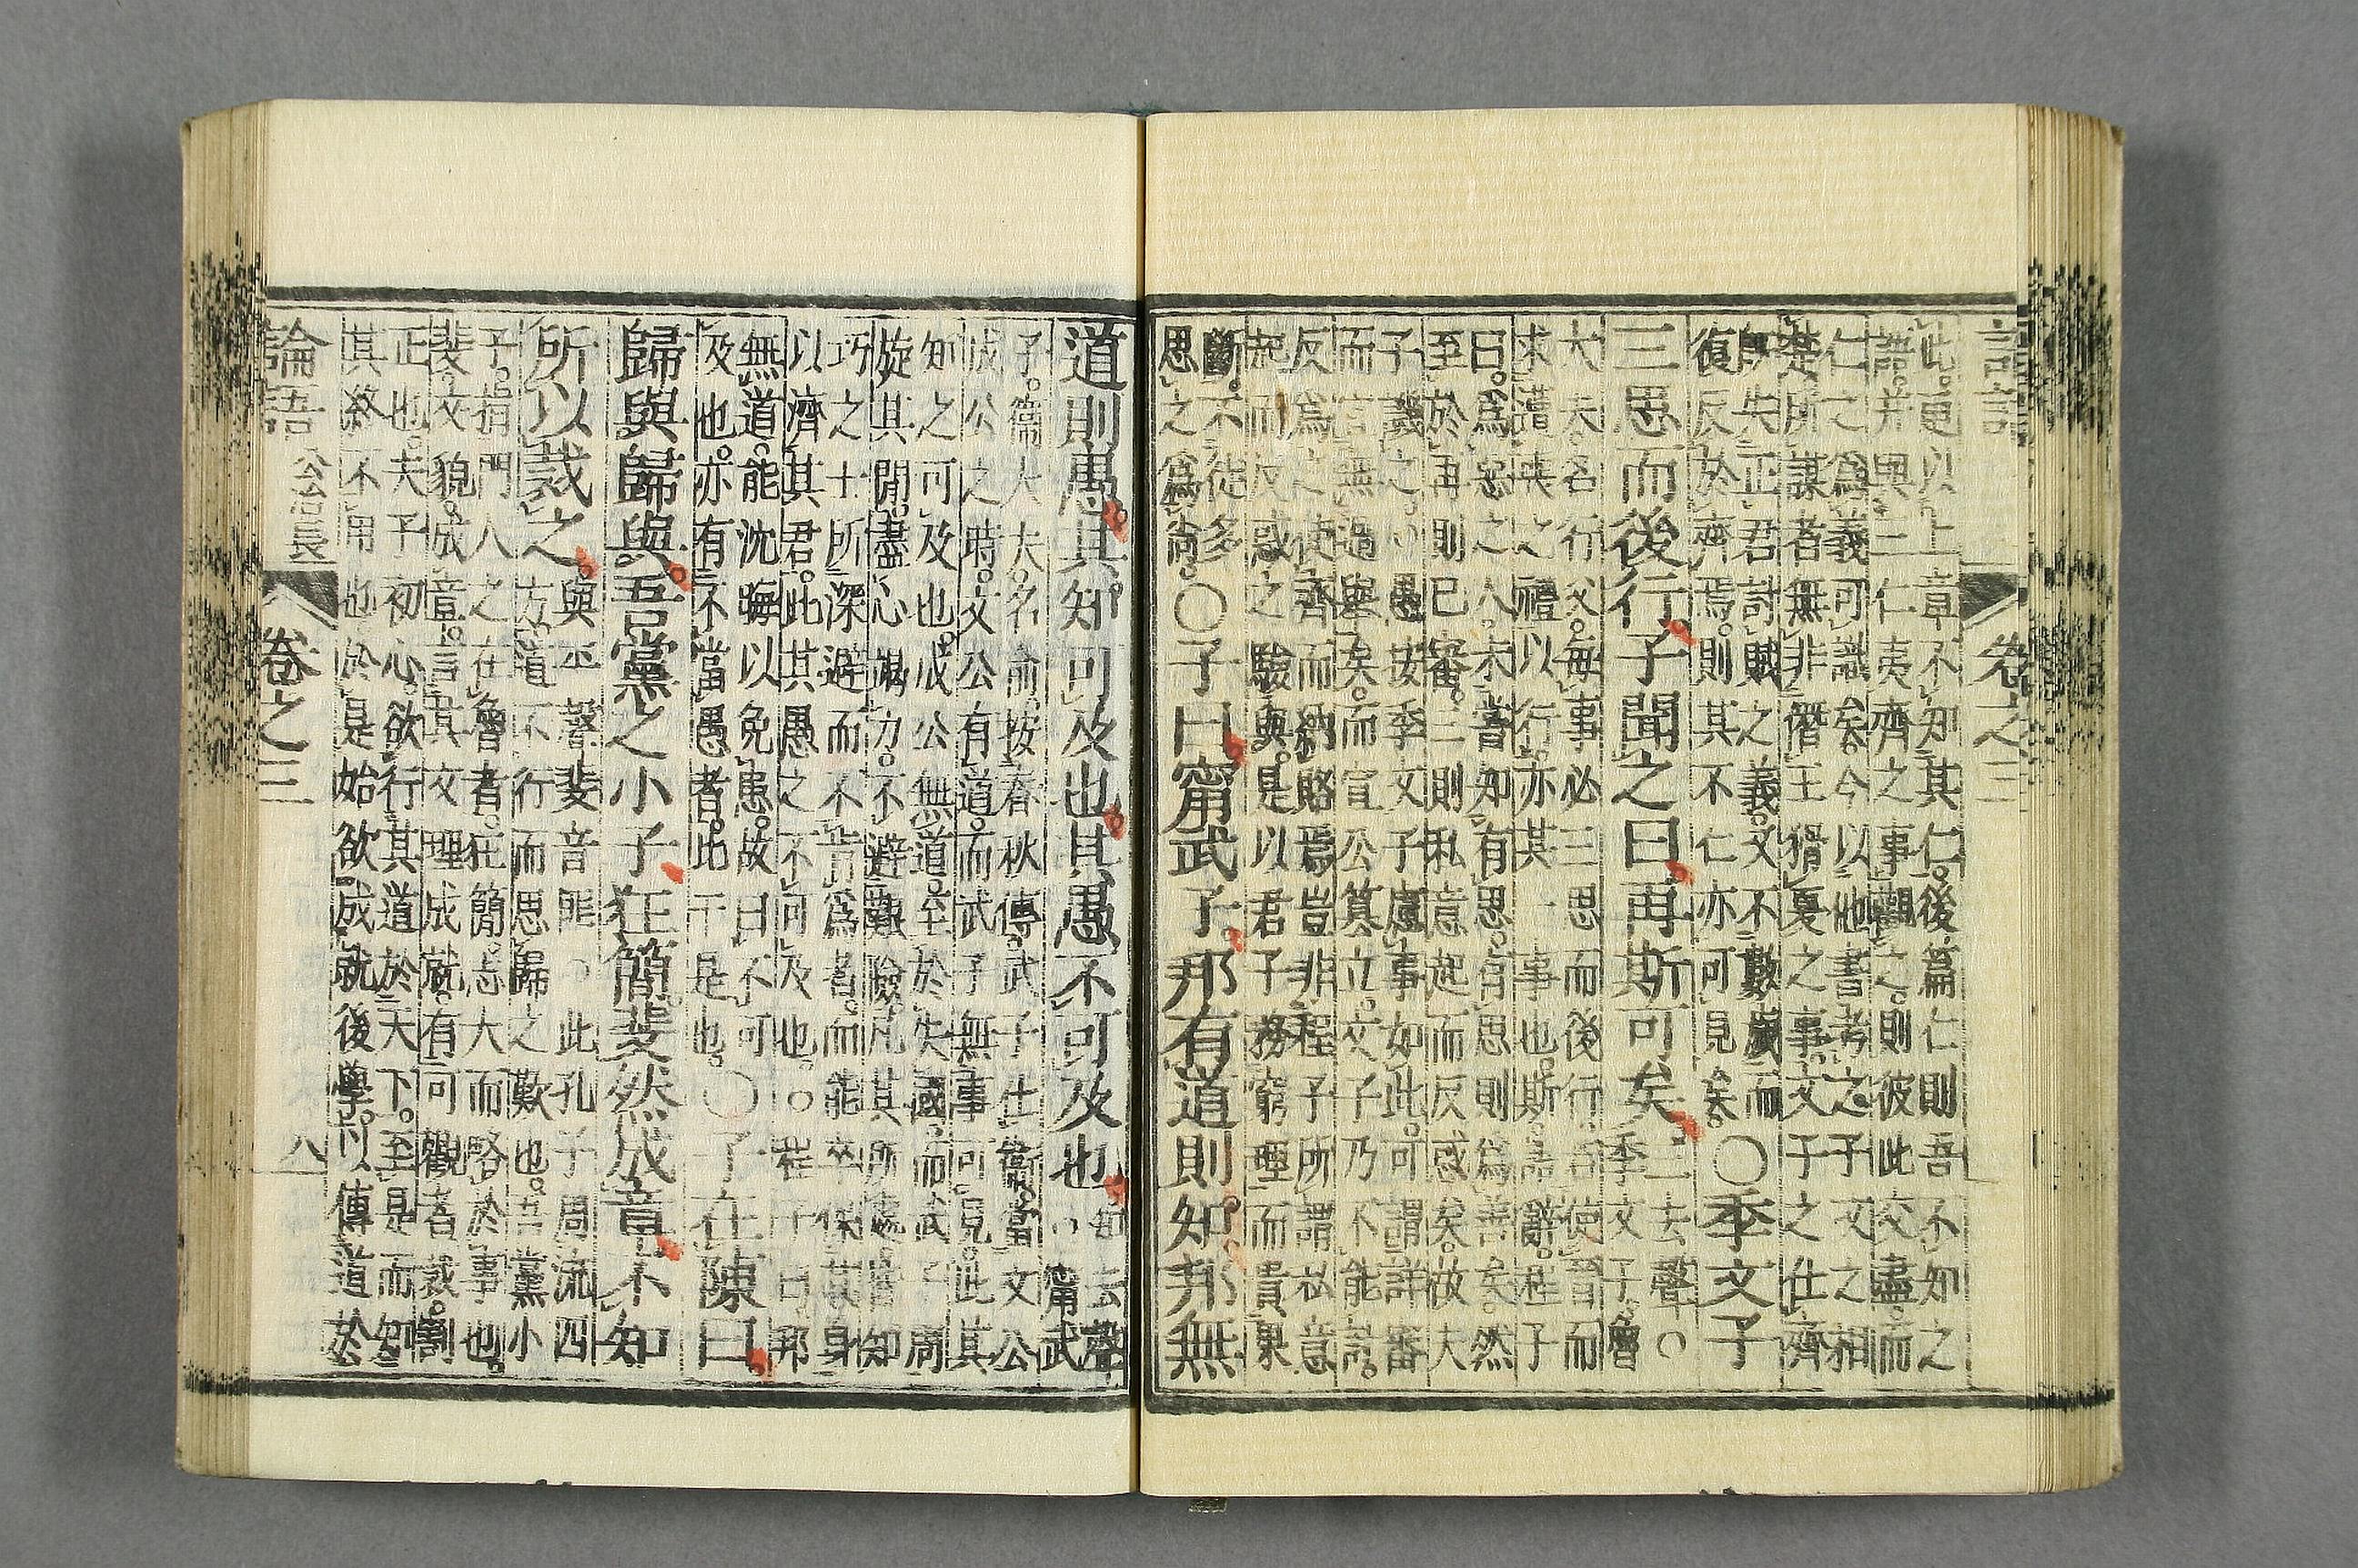 卷之三
此更以上章不知其仁後篇仁則吾不知之
語并與三仁夷齊之事觀之則彼此交盡而
仁之爲義可識矣今以他書考之子文之相
楚所謀者無非僭王猾夏之事文子之仕齊
既失正君討賊之義又不數歲而
復反於齊焉則其不仁亦可見矣
○季文子
三思而後行子聞之曰再斯可矣
三去聲○
季文子魯
大夫名行父每事必三思而後行若使晉而
求遭喪之禮以行亦其一事也斯語辭程子
曰爲惡之人未嘗知有思有思則爲善矣然
至於再則已審三則私意起而反惑矣故夫
子譏之○愚按季文子慮事如此可謂詳審
而宜無過舉矣而宣公簒立文子乃不能討
反爲之使齊而納賂焉豈非程子所謂私意
起而反惑之驗與是以君子務窮理而貴果
斷不徒多
思之爲尚
○子曰甯武子邦有道則知邦無
道則愚其知可及也其愚不可及也
知去聲
○甯武
子衞大夫名俞按春秋傳武子仕衞當文公
成公之時文公有道而武子無事可見此其
知之可及也成公無道至於失國而武子周
旋其閒盡心竭力不避艱險凡其所處皆知
巧之士所深避而不肯爲者而能卒保其身
以濟其君此其愚之不可及也○程子曰邦
無道能沈晦以免患故曰不可
及也亦有不當愚者比干是也
○子在陳曰
歸與歸與吾黨之小子狂簡斐然成章不知
所以裁之
與平聲斐音匪○此孔子周流四
方道不行而思歸之歎也吾黨小
子指門人之在魯者狂簡志大而略於事也
斐文貌成章言其文理成就有可觀者裁割
正也夫子初心欲行其道於天下至是而知
其終不用也於是始欲成就後學以傳道於
論語 公冶長 卷之三 八